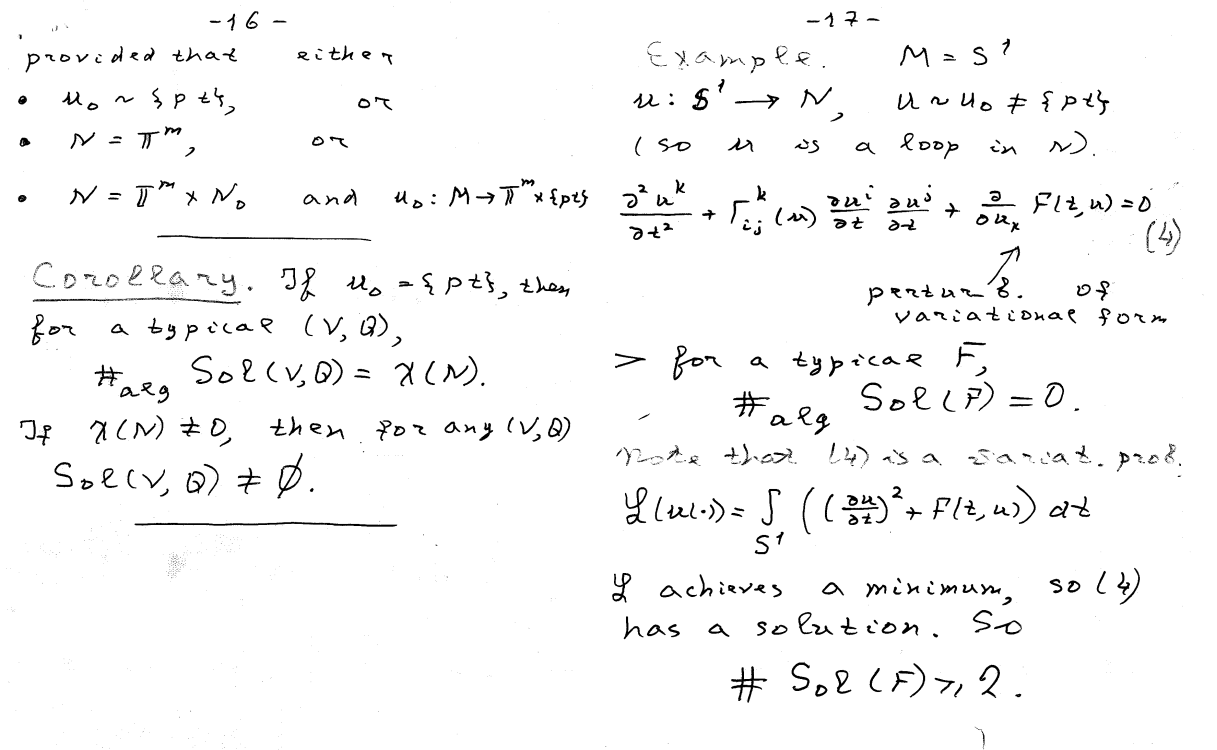 -16-
provided that either
• u₀ ~ {pt}, or
• N = 𝕋ᵐ, or
• N = 𝕋ᵐ × N₀ and u₀: M → 𝕋ᵐ × {pt}
Corollary. If u₀ = {pt}, then
for a typical (V, Q),
#alg Sol(V, Q) = χ(N).
If χ(N) ≠ 0, then for any (V, Q)
Sol(V, Q) ≠ ∅.
-17-
Example. M = S¹
u: S¹ → N, u ~ u₀ ≠ {pt}
(so u is a loop in N).
∂²uᵏ/∂t² + Γᵢⱼᵏ(u) ∂uⁱ/∂t ∂uʲ/∂t + ∂/∂uₖ F(t, u) = 0
(4)
perturb. of
variational form
> for a typical F,
#alg Sol(F) = 0.
Note that (4) is a variat. prob.
ℒ(u(·)) = ∫S¹ ((∂u/∂t)² + F(t, u)) dt
ℒ achieves a minimum, so (4)
has a solution. So
# Sol(F) ≥ 2.